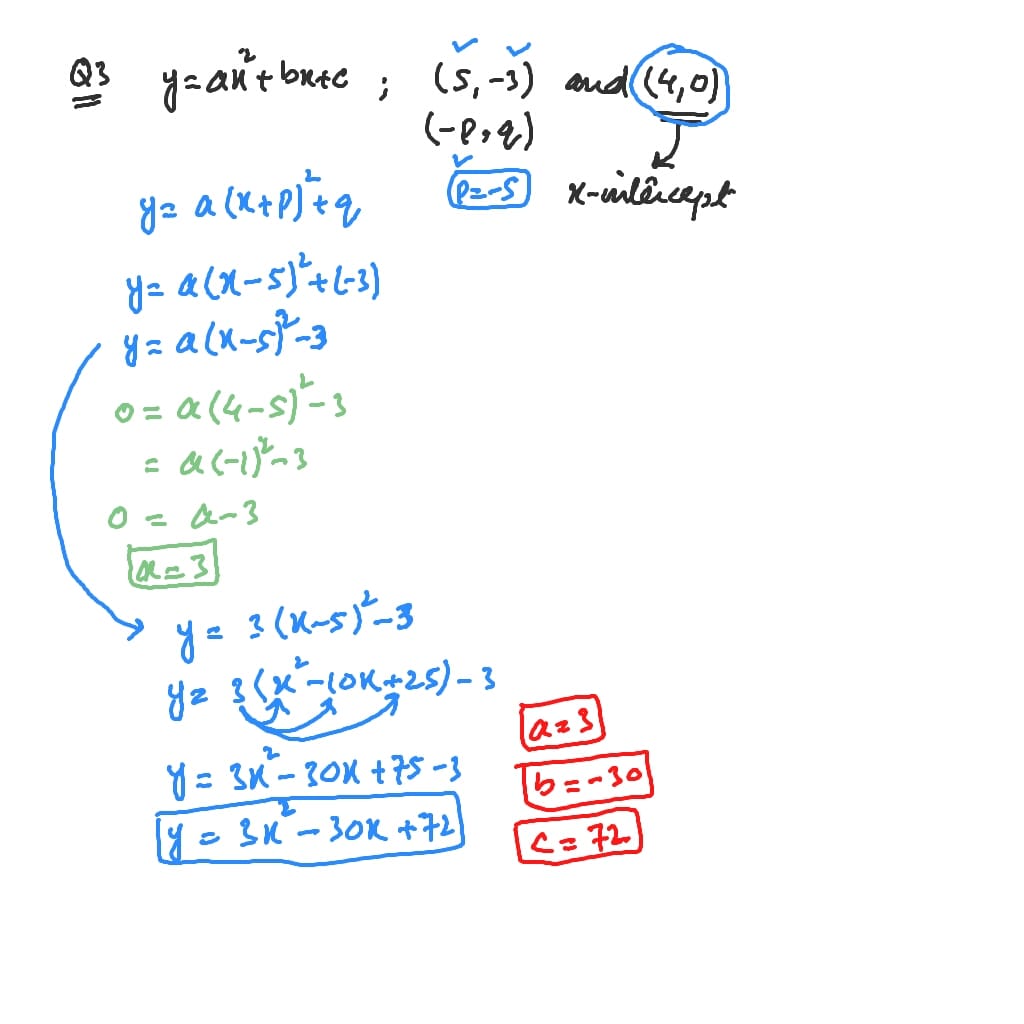 Q3 y=ax²+bx+c ; (5,-3) and (4,0)
(-p,q)
y= a(x+p)²+q p=-5 x-intercept
y= a(x-5)²+(-3)
y= a(x-5)²-3
0= a(4-5)²-3
= a(-1)²-3
0 = a-3
a=3
y= 3(x-5)²-3
y= 3(x²-10x+25)-3
y= 3x²-30x+75-3
y = 3x²-30x+72
a=3
b=-30
c=72